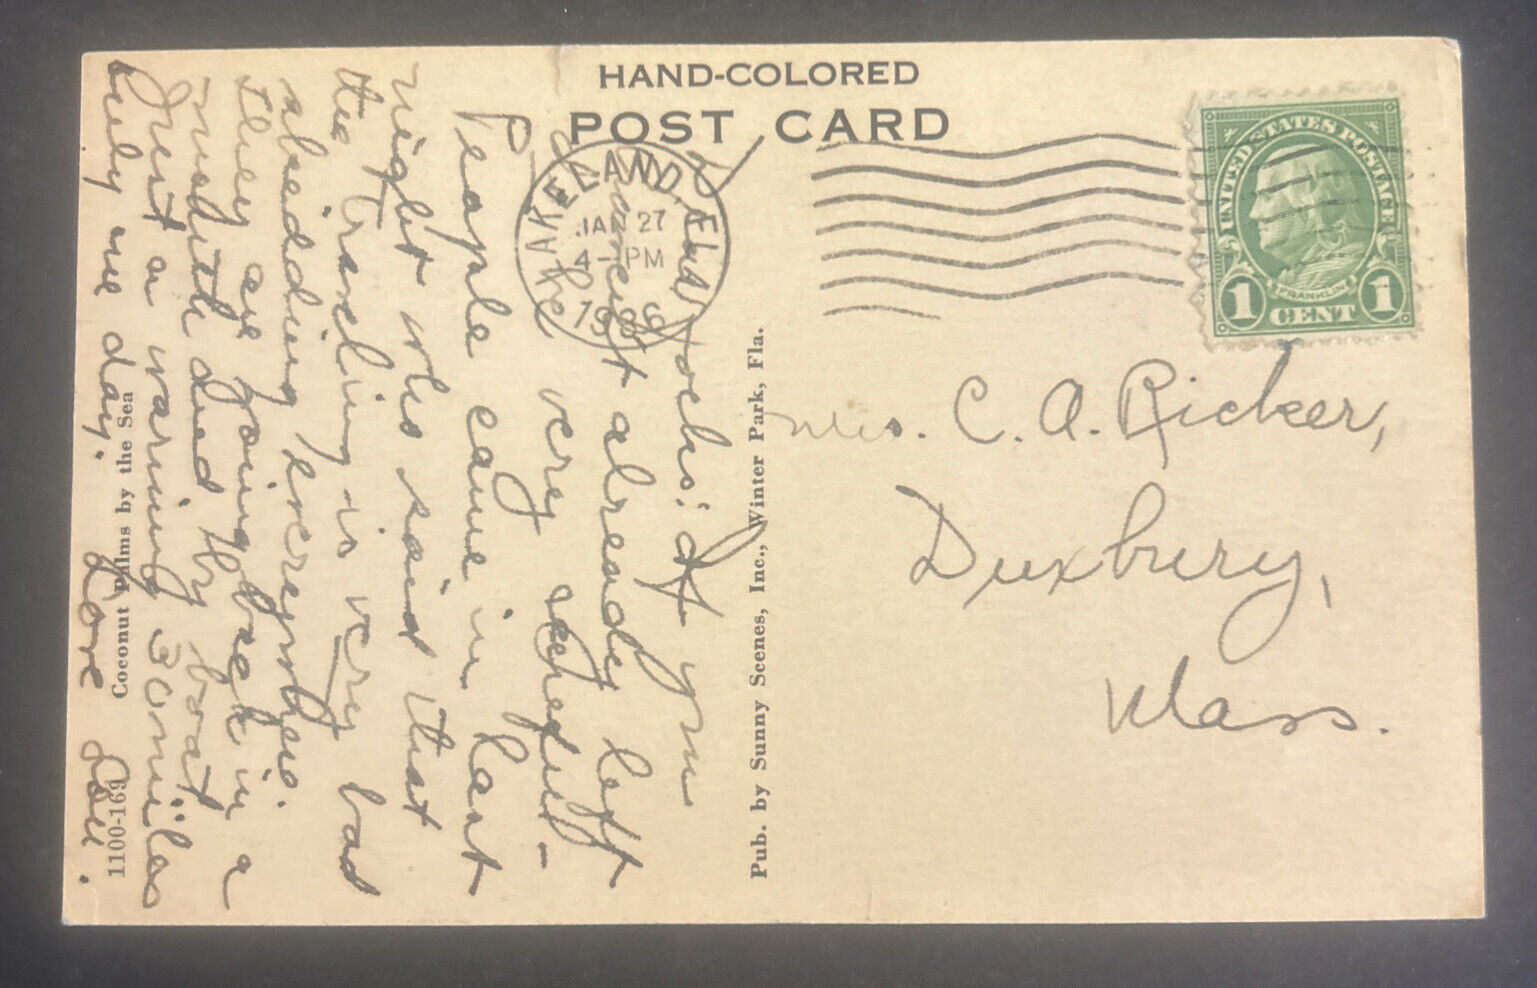 HAND-COLORED
POST CARD
LAKELAND, FLA.
JAN 27
4-PM
1936
UNITED STATES POSTAGE
FRANKLIN
1 CENT 1
Mrs. C. A. Ricker,
Duxbury,
Mass.
Pub. by Sunny Scenes, Inc., Winter Park, Fla.
Dear Folks: If you
haven't already left
be very careful-
People came in last
night who said that
the Traveling is very bad
skidding everywhere.
They are going back in a
month and by boat
Just a warning 30 miles
only one day.
Love Lou.
Coconut Palms by the Sea
1100-169